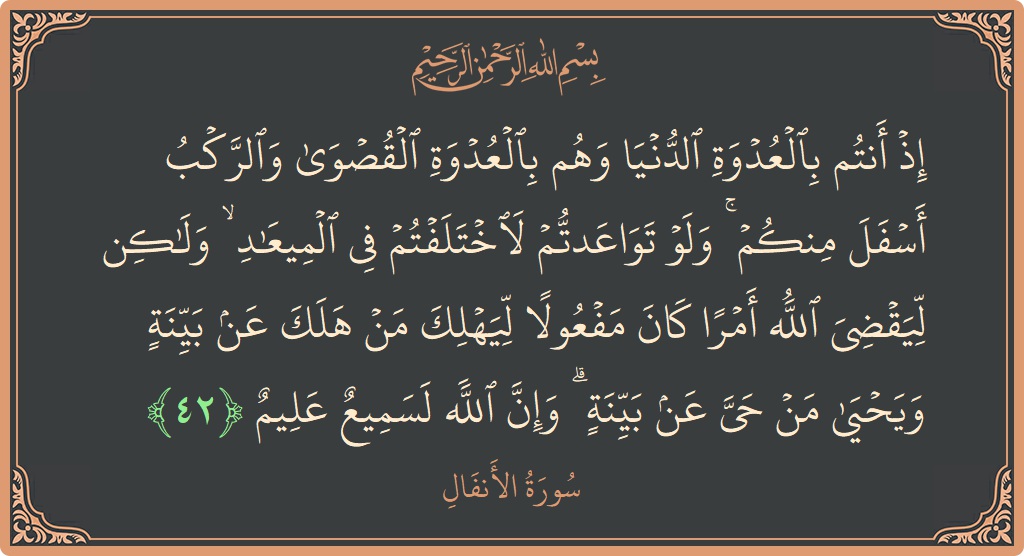 بِسْمِ اللهِ الرَّحْمٰنِ الرَّحِيْمِ
إِذۡ أَنتُم بِٱلۡعُدۡوَةِ ٱلدُّنۡيَا وَهُم بِٱلۡعُدۡوَةِ ٱلۡقُصۡوَىٰ وَٱلرَّكۡبُ
أَسۡفَلَ مِنكُمۡۚ وَلَوۡ تَوَاعَدتُّمۡ لَٱخۡتَلَفۡتُمۡ فِي ٱلۡمِيعَٰدِۙ وَلَٰكِن
لِّيَقۡضِيَ ٱللَّهُ أَمۡرٗا كَانَ مَفۡعُولٗا لِّيَهۡلِكَ مَنۡ هَلَكَ عَنۢ بَيِّنَةٖ
وَيَحۡيَىٰ مَنۡ حَيَّ عَنۢ بَيِّنَةٖۗ وَإِنَّ ٱللَّهَ لَسَمِيعٌ عَلِيمٌ ﴿٤٢﴾
سُورَةُ الأَنفَالِ